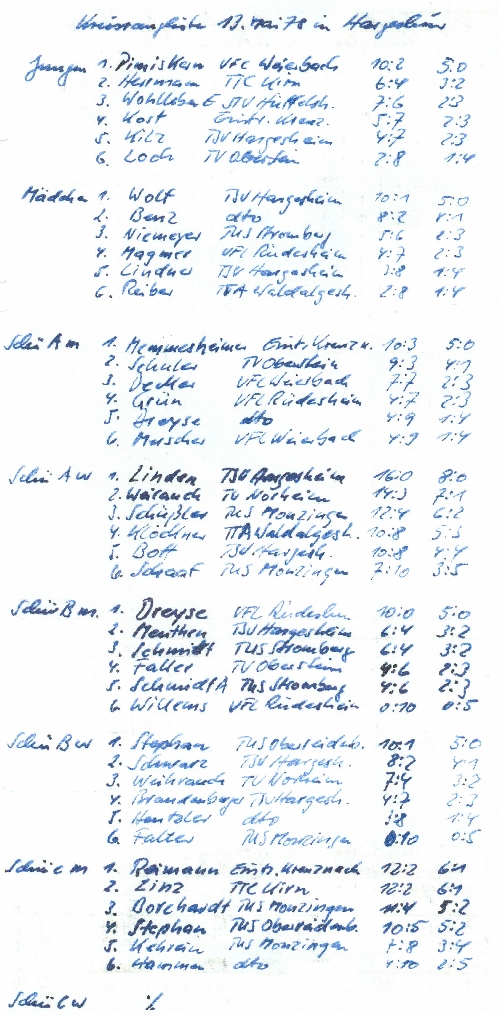 Kreisrangliste 13. Mai 78 in Hargesheim
Jungen 1. Pirniskern VFL Weierbach 10:2 5:0
2. Herrmann TTC Kirn 6:4 3:2
3. Wohlleber E STV Hüffelsh. 7:6 2:3
4. Kost Eintr. Krenz. 5:7 2:3
5. Kilz TSV Hargesheim 4:7 2:3
6. Loch TV Oberstein 2:8 1:4
Mädchen 1. Wolf TSV Hargesheim 10:1 5:0
2. Benz dto 8:2 4:1
3. Niemeyer TUS Stromberg 5:6 2:3
4. Magmer VFL Rüdesheim 4:7 2:3
5. Lindner TSV Hargesheim 3:8 1:4
6. Reiber TTA Waldalgesh. 2:8 1:4
Schü A m 1. Memmesheimer Eintr. Kreuzn. 10:3 5:0
2. Schuler TV Oberstein 9:3 4:1
3. Decker VFL Weierbach 7:7 2:3
4. Grün VFL Rüdesheim 4:7 2:3
5. Dreyse dto 4:9 1:4
6. Muscher VFL Weierbach 4:9 1:4
Schü A w 1. Linden TSV Hargesheim 16:0 8:0
2. Weirauch TV Norheim 14:3 7:1
3. Schüßler TUS Monzingen 12:4 6:2
4. Klöckner TTA Waldalgesh. 10:8 5:3
5. Bott TSV Hargesh. 10:8 4:4
6. Schaaf TUS Monzingen 7:10 3:5
Schü B m. 1. Dreyse VFL Rüdeshm 10:0 5:0
2. Menthen TSV Hargesheim 6:4 3:2
3. Schmidt TUS Stromberg 6:4 3:2
4. Faller TV Oberstein 4:6 2:3
5. Schmidt A TUS Stromberg 4:6 2:3
6. Willems VFL Rüdesheim 0:10 0:5
Schü B w 1. Stephan TUS Obereidenb. 10:1 5:0
2. Schwarz TSV Hargesh. 8:2 4:1
3. Weihrauch TV Norheim 7:4 3:2
4. Brandenburger TSV Hargesh. 4:7 2:3
5. Hentzler dto 3:8 1:4
6. Falter TUS Monzingen 0:10 0:5
Schü C m 1. Reimann Eintr. Kreuznach 12:2 6:1
2. Zinz TTC Kirn 12:2 6:1
3. Borchardt TUS Monzingen 11:4 5:2
4. Stephan TUS Obereidenb. 10:5 5:2
5. Kehrein TUS Monzingen 7:8 3:4
6. Hammen dto 4:10 2:5
Schü C w %